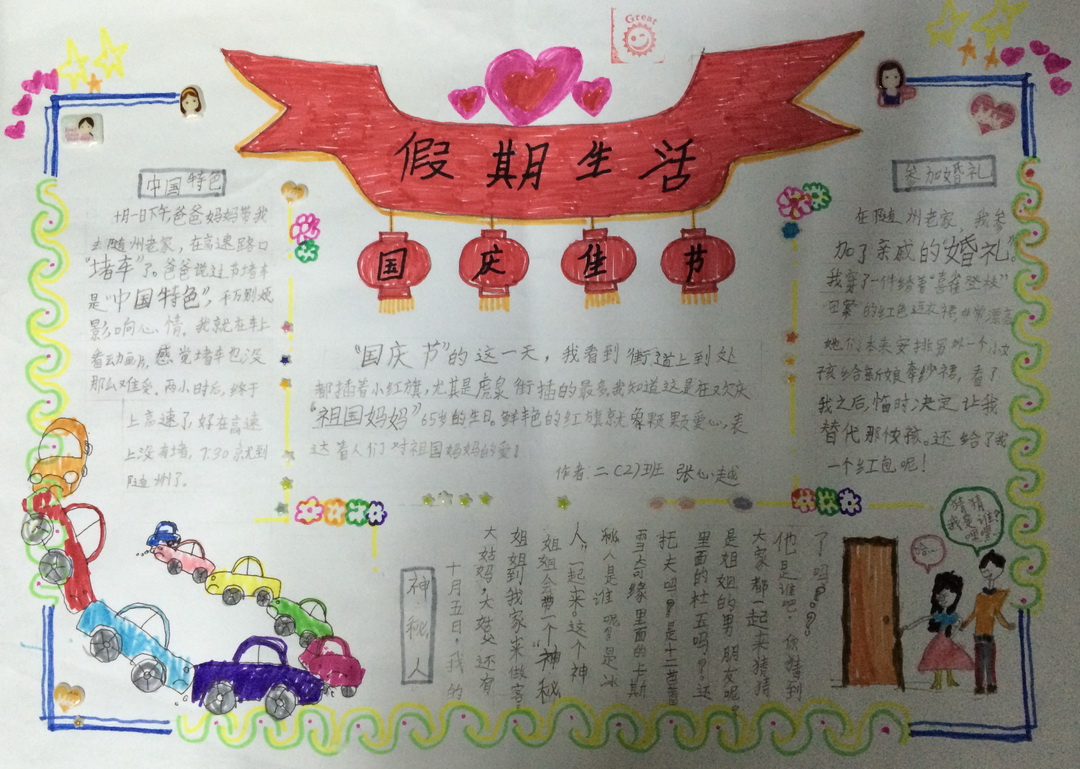 Great
假期生活
国庆佳节
中国特色
十月一日下午爸爸妈妈带我
去随州老家，在高速路口
“堵车”了。爸爸说过节堵车
是“中国特色”，千万别烦
影响心情。我就在车上
看动画片，感觉堵车也没
那么难受。两小时后，终于
上高速了，好在高速
上没有堵，7:30就到
随州了。
“国庆节”的这一天，我看到街道上到处
都插着小红旗，尤其是虎泉街插的最多，我知道这是在欢庆
“祖国妈妈”65岁的生日。鲜艳的红旗就象颗颗爱心，表
达着人们对祖国妈妈的爱！
作者：二（2）班 张心越
参加婚礼
在随州老家，我参
加了亲戚的婚礼。
我穿了一件绣着“喜雀登枝”
图案的红色连衣裙，非常漂亮
她们本来安排另外一个小女
孩给新娘牵纱裙，看了
我之后，临时决定让我
替代那女孩。还给了我
一个红包呢！
神秘人
十月五日，我的
大姑妈，大姑父还有
姐姐到我家来做客，
姐姐会带一个“神秘
人”一起来。这个神
秘人是谁呢？是冰
雪奇缘里面的卡斯
托夫吗？是十二芭蕾
里面的杜五吗？还
是姐姐的男朋友呢。
大家都一起来猜猜
他是谁吧，你猜到
了吗？？
猜猜
我是谁？
嘿嘿